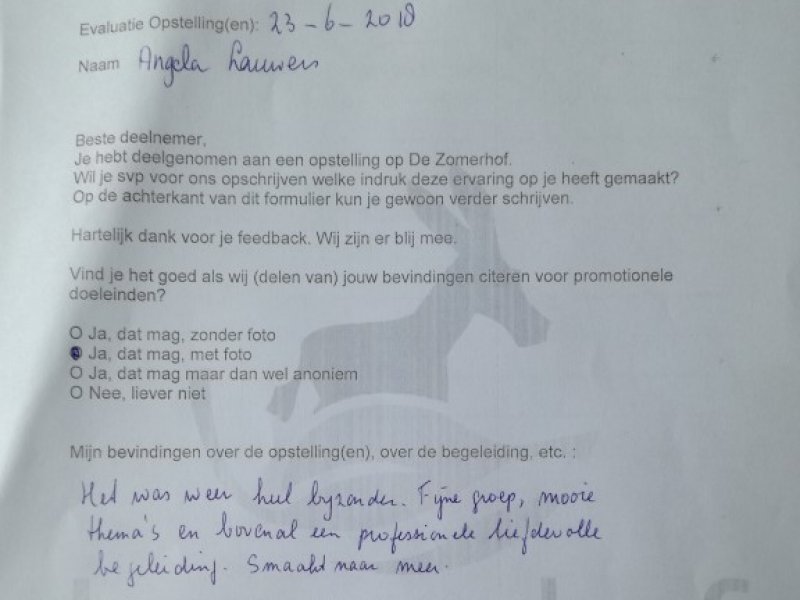 Evaluatie Opstelling(en): 23-6-2018
Naam Angela Lauwers
Beste deelnemer,
Je hebt deelgenomen aan een opstelling op De Zomerhof.
Wil je svp voor ons opschrijven welke indruk deze ervaring op je heeft gemaakt?
Op de achterkant van dit formulier kun je gewoon verder schrijven.
Hartelijk dank voor je feedback. Wij zijn er blij mee.
Vind je het goed als wij (delen van) jouw bevindingen citeren voor promotionele
doeleinden?
O Ja, dat mag, zonder foto
O Ja, dat mag, met foto
O Ja, dat mag maar dan wel anoniem
O Nee, liever niet
Mijn bevindingen over de opstelling(en), over de begeleiding, etc. :
Het was weer heel byzonder. Fijne groep, mooie
thema's en bovenal een professionele liefdevolle
begeleiding. Smaakt naar meer.